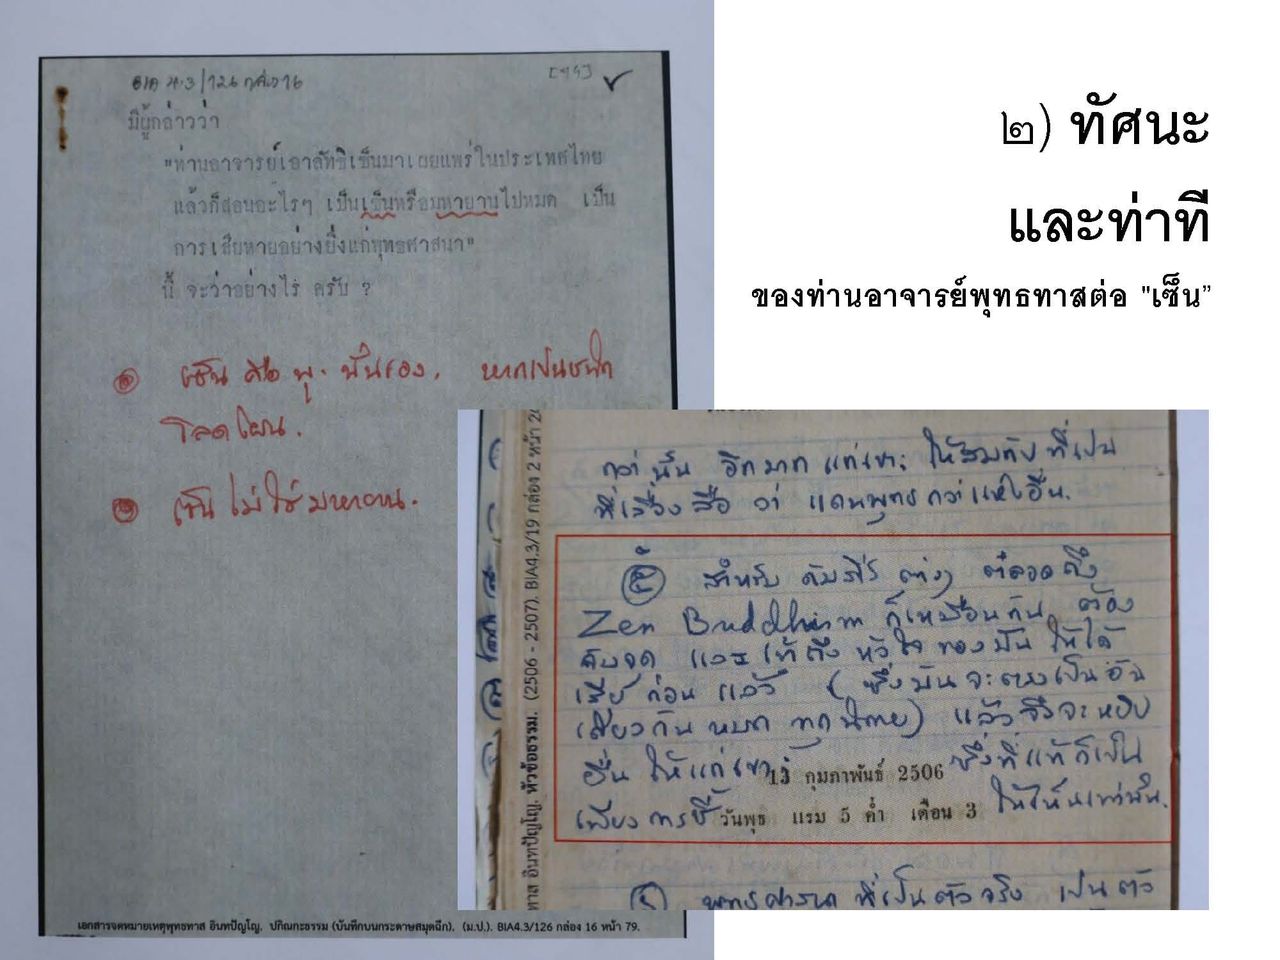 ๒) ทัศนะ
และท่าที
ของท่านอาจารย์พุทธทาสต่อ "เซ็น”
BIA 4.3/126 กล่อง 16
[79]
มีผู้กล่าวว่า
"ท่านอาจารย์เอาลัทธิเซ็นมาเผยแพร่ในประเทศไทย
แล้วก็สอนอะไรๆ เป็นเซ็นหรือมหายานไปหมด เป็น
การเสียหายอย่างยิ่งแก่พุทธศาสนา"
นี้ จะว่าอย่างไร ครับ ?
เซ็น คือ พุ. นั่นเอง. หากเป็นชนิด
โลดโผน.
เซ็น ไม่ใช่มหายาน.
เอกสารจดหมายเหตุพุทธทาส อินทปัญโญ. ปกิณกะธรรม (บันทึกบนกระดาษสมุดฉีก). (ม.ป.). BIA4.3/126 กล่อง 16 หน้า 79.
ทาส อินทปัญโญ. หัวข้อธรรม. (2506 - 2507). BIA4.3/19 กล่อง 2 หน้า 20
กว่านั้น อีกมาก แก่เขา: ให้สมกับที่เป็น
ที่เลื่องลือ ว่า แดนพุทธ กว่าแห่งอื่น.
๕ สำหรับ คัมภีร์ ต่างๆ ตลอดถึง
Zen Buddhism ก็เหมือนกัน ต้อง
จับจุด และเข้าถึง หัวใจ ของมัน ให้ได้
เสีย ก่อน แล้ว (ซึ่งมันจะตรงเป็นอัน
เดียวกัน หมด ทุกนิกาย) แล้วจึงจะหยิบ
ยื่น ให้แก่เขา ซึ่งที่แท้ก็เป็น
13 กุมภาพันธ์ 2506
เพียงการชี้ ให้เห็นเท่านั้น.
วันพุธ แรม 5 ค่ำ เดือน 3
พุทธศาสนา ที่เป็นตัวจริง เป็นตัว